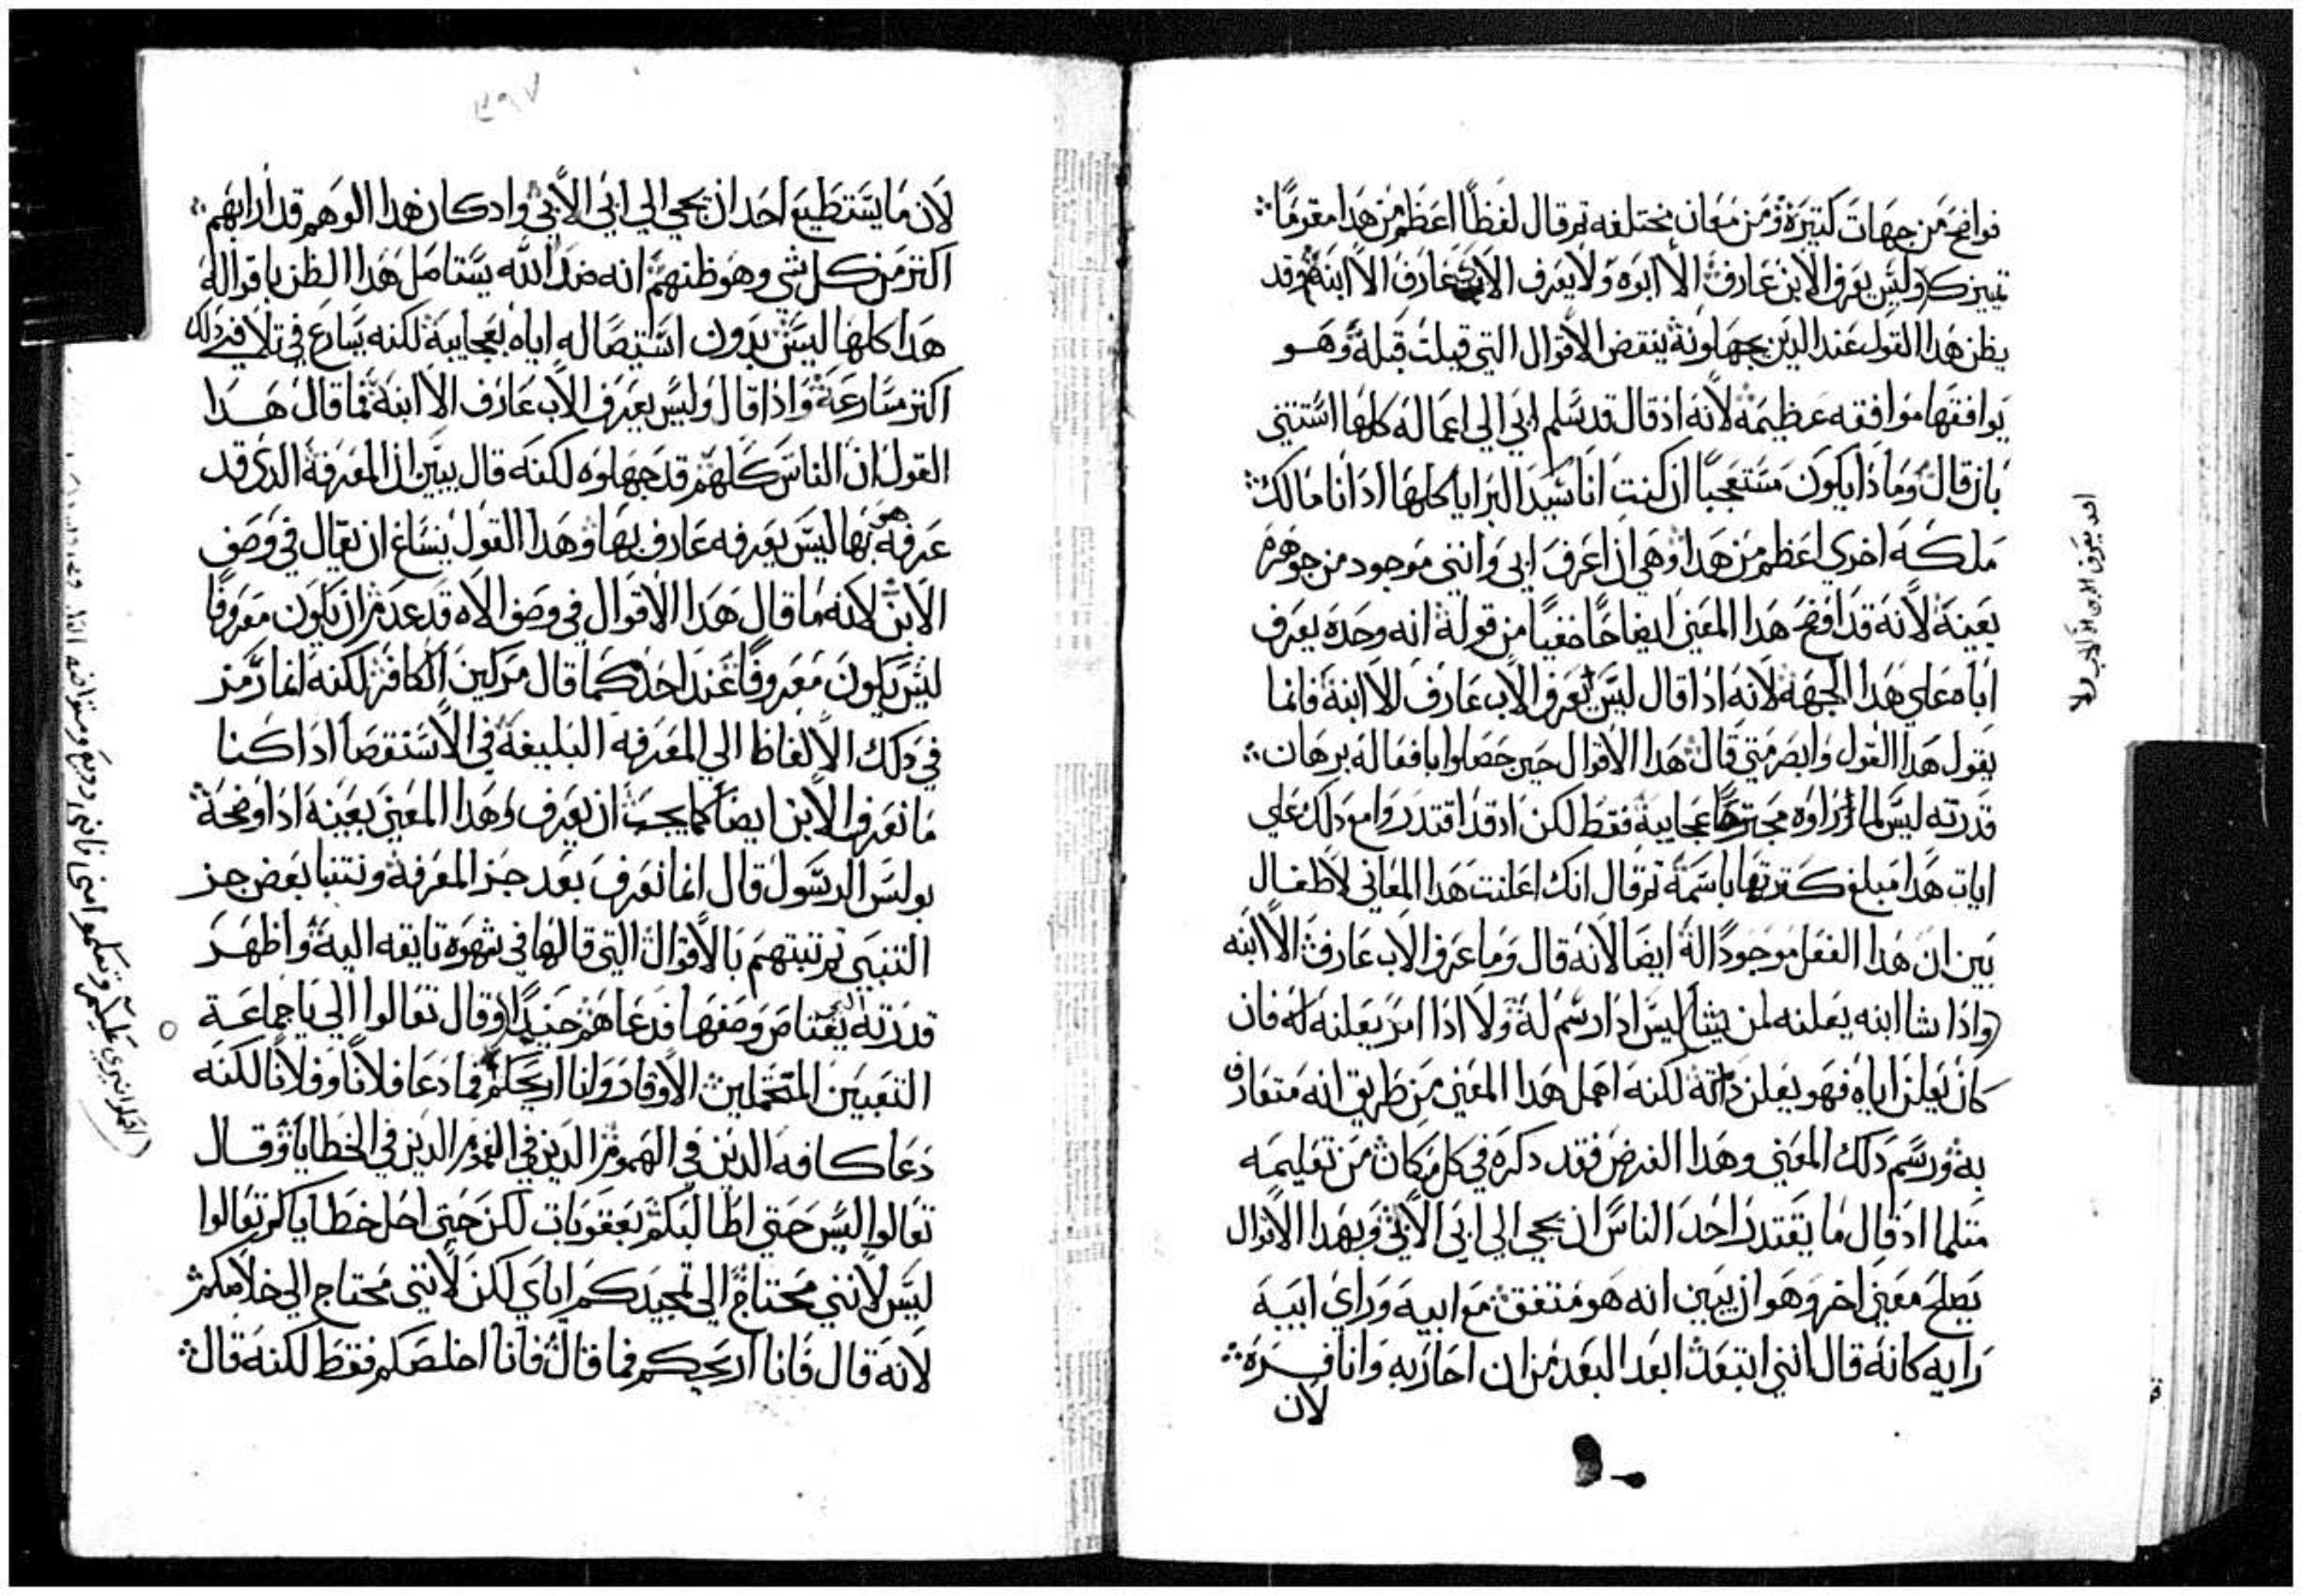 فواضح من جهات كتيرة ومن معان مختلفه تم قال لفظًا اعظم من هدا مقومًا
تمييزك وليس يعرف الابن عارف الا ابوه ولا يعرف الاب عارف الا ابنه وقد
يظن هدا القول عند الدين يجهلونه ينقض الاقوال التي قيلت قبله وهو
يوافقها موافقه عظيمه لانه اذ قال قد سلم ابي الي اعماله كلها استتني
بان قال وما ذا يكون مستعجبًا ان كنت انا سيد البرايا كلها اذ انا مالك
ملكه اخري اعظم من هدا وهي ان اعرف ابي وانني موجود من جوهره
بعينه لانه قد افضح هدا المعني ايضا خفيًا من قوله انه وحده يعرف
اباه علي هدا الجهه لانه اذا قال ليس يعرف الاب عارف الا ابنه فانما
يقول هدا القول وابصر متي قال هدا الاقوال حين حصلوا بافعاله برهان
قدرته ليس لما راوه مجترحًا عجايبه فقط لكن اذ قد اقتدروا مع دلك علي
ايات هدا مبلغ كترتها باسمه تم قال انك اعلنت هدا المعاني لاطفال
بين ان هدا الفعل موجودًا له ايضا لانه قال وما عرف الاب عارف الا ابنه
واذا شا ابنه يعلنه لمن يشا ليس اذا رسم له ولا اذا امر يعلنه له فان
كان يعلن اياه فهو يعلن داته لكنه اهمل هدا المعني من طريق انه متعارف
به ورسم دلك المعني وهدا الغرض فقد دكره في كل مكان من تعليمه
متلما اذ قال ما يقتدر احد الناس ان يجي الي ابي الا بي وبهدا الاقوال
يصلح معني اخر وهو ان يبين انه هو متفق مع ابيه وراي ابيه
رايه كانه قال انني ابتعد ابعد البعد من ان احاربه وانا فره
لان
احد يعرف الابن الا الاب ولا
٣٩٧
لان ما يستطيع احد ان يجي الي ابي الا بي واد كان هدا الوهم قد ارابهم
اكتر من كل شي وهو ظنهم انه ضد الله يستاصل هدا الظن باقواله
هدا كلها ليس بدون استيصاله اياه بعجايبه لكنه يسارع في تلافي دلك
اكتر مسارعه واذا قال وليس يعرف الاب عارف الا ابنه فما قال هدا
القول ان الناس كلهم قد جهلوه لكنه قال يبين ان المعرفه الدي قد
عرفه هو بها ليس يعرفه عارف بها وهدا القول ينساغ ان يقال في وصف
الابن لانه ما قال هدا الاقوال في وصف الاه قد عدم ان يكون معروفًا
ليس يكون معروفًا عند احد كما قال مركين الكافر لكنه انما رمز
في دلك الالفاظ الي المعرفه البليغه في الاستقصا اذا كنا
ما نعرف الابن ايضا كما يجب ان يعرف وهدا المعني بعينه اذا اوضحه
بولس الرسول قال انما نعرف بعد جز المعرفه ونتنبا بعض جز
التنبي تم تبتهم بالاقوال التي قالها في شهوه تايقه اليه واظهر
قدرته يعتاص وصفها فدعاهم حينيد وقال تعالوا الي يا جماعة
التعبين المتحملين الاوقار وانا اريحكم فما دعا فلانًا وفلانًا لكنه
دعا كافه الدين في الهموم الدين في الغموم الدين في الخطايا وقال
تعالوا ليس حتي اطالبكم بعقوبات لكن حتي احل خطاياكم تعالوا
ليس لانني محتاج الي تمجيدكم اياي لكن لانني محتاج الي خلاصكم
لانه قال فانا اريحكم فما قال فانا اخلصكم فقط لكنه قال
احملوا نيري عليكم وتعلموا مني فانني وديع ومتواضع